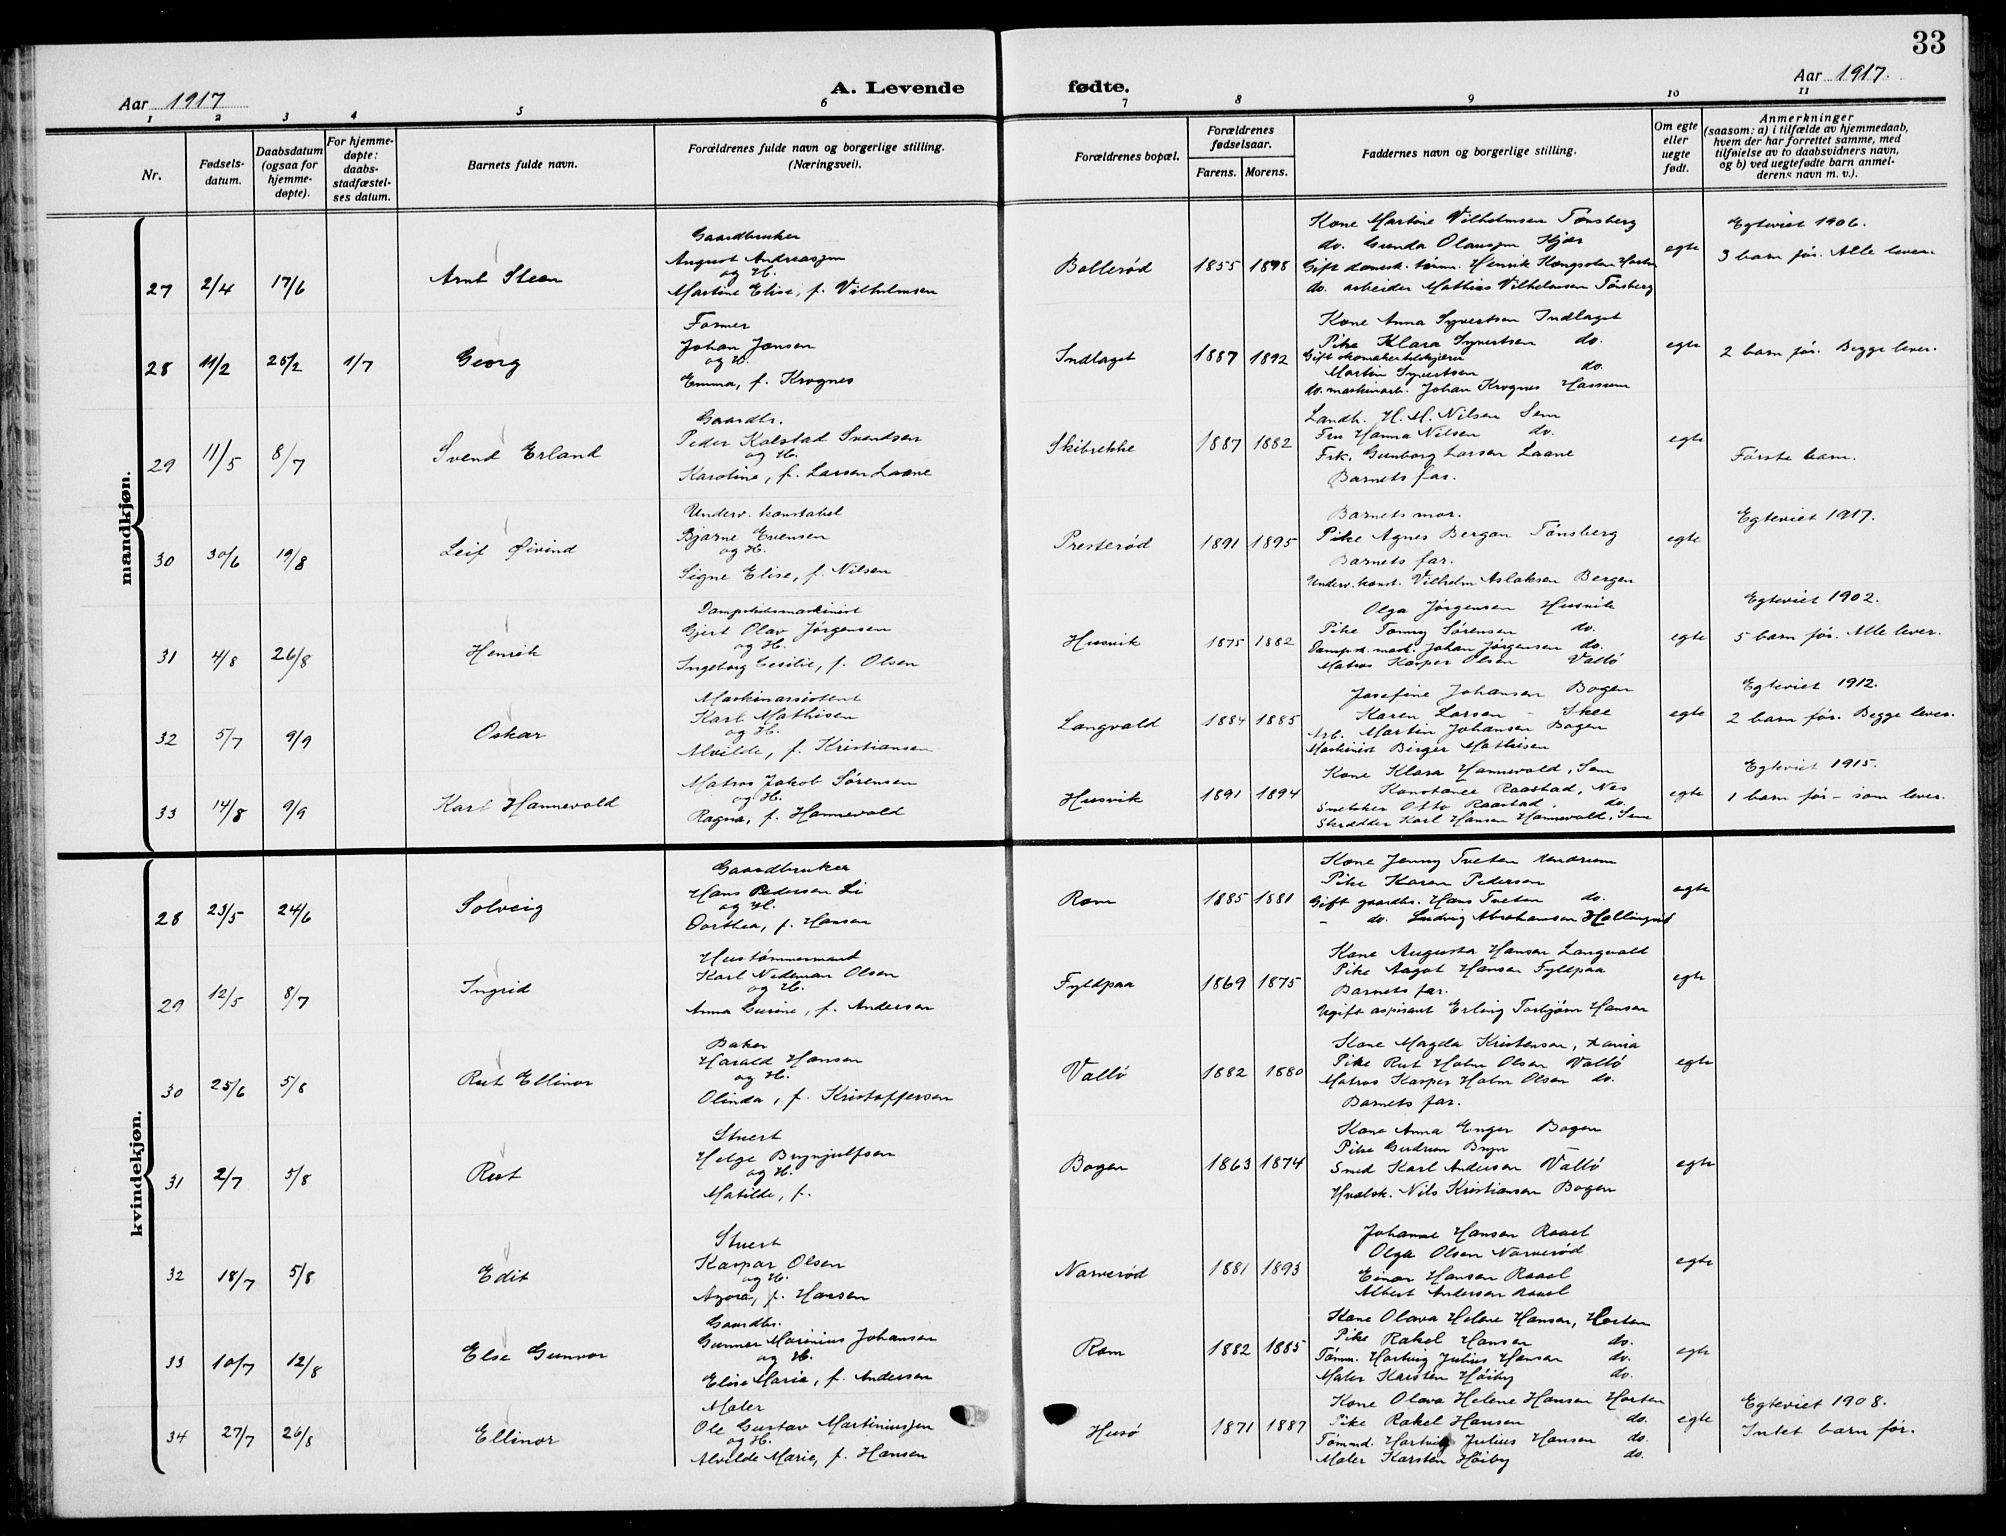 33
Aar 1917
A. Levende
fødte.
Aar 1917.
1 2 3 4 5 6 7 8 9 10 11
Nr.
Fødsels-
datum.
Daabsdatum
(ogsaa for
hjemme-
døpte).
For hjemme-
døpte:
daabs-
stadfæstel-
ses datum.
Barnets fulde navn.
Forældrenes fulde navn og borgerlige stilling.
(Næringsvei).
Forældrenes bopæl.
Forældrenes
fødselsaar.
Farens. Morens.
Faddernes navn og borgerlige stilling.
Om egte
eller
uegte
født.
Anmerkninger
(saasom: a) i tilfælde av hjemmedaab,
hvem der har forrettet samme, med
tilføielse av to daabsvidners navn,
og b) ved uegtefødte barn anmel-
derens navn m. v.).
mandkjøn.
27 2/4 17/6 Arnt Steen
Gaardbruker
August Andreassen
og H.
Martine Elise, f. Vilhelmsen
Bollerød 1855 1898
Kone Martine Vilhelmsen Tønsberg
do. Gunda Olaussen Kjær
Gift dansk. tømm. Henrik Kongsten Horten
do. arbeider Mathias Vilhelmsen Tønsberg
egte
Egteviet 1906.
3 barn før. Alle lever.
28 11/2 25/2 1/7 Georg
Former
Johan Jensen
og H.
Emma, f. Krognes
Indlaget 1887 1892
Kone Anna Syvertsen Indlaget
Pike Klara Syvertsen do.
Martin Syvertsen do.
do. maskinarb. Johan Krognes
egte
2 barn før. Begge lever.
29 11/5 8/7 Svend Erland
Gaardbr.
Peder Kolstad Svendsen
og H.
Karoline, f. Larsen Laane
Skibrekke 1887 1882
Landh. H. M. Nilsen Sem
Fru Hanna Nilsen do.
Frk. Gunborg Larsen Laane
Barnets far.
egte
Første barn.
30 30/6 19/8 Leif Øivind
Underv. konstabel
Bjarne Evensen
og H.
Signe Elise, f. Nilsen
Presterød 1891 1895
Barnets mor.
Pike Agnes Bergan Tønsberg
Barnets far.
Underv. konst. Vilhelm Aslaksen Bergen
egte
Egteviet 1917.
31 4/8 26/8 Henrik
Dampskibsmaskinist
Gjert Olav Jørgensen
og H.
Ingeborg Cecilie, f. Olsen
Husvik 1875 1882
Olga Jørgensen Husvik
Pike Tonny Sørensen do.
Dampsk. mask. Johan Jørgensen do.
Matros Kasper Olsen Vallø
egte
Egteviet 1902.
5 barn før. Alle lever.
32 5/7 9/9 Oskar
Maskinassistent
Karl Mathisen
og H.
Alvilde, f. Kristiansen
Langvald 1884 1885
Josefine Johansen Bogen
Karen Larsen - Skee
Arb. Martin Johansen Bogen
Maskinist Birger Mathisen
egte
Egteviet 1912.
2 barn før. Begge lever.
33 14/8 9/9 Karl Hannevold
Matros Jakob Sørensen
og H.
Ragna, f. Hannevold
Husvik 1891 1894
Kone Klara Hannevold, Sem
Konstance Raastad, Nes
Snekker Otto Raastad, do.
Skrædder Karl Hansen Hannevold, Sem
egte
Egteviet 1915.
1 barn før - som lever.
kvindekjøn.
28 23/5 24/6 Solveig
Gaardbruker
Hans Pedersen Li
og H.
Dorthea, f. Hansen
Rom 1885 1881
Kone Jenny Tveten Undrum
Pike Karen Pedersen
Gift gaardbr. Hans Tveten do.
- do. Ludvig Abrahamsen
egte
29 12/5 8/7 Ingrid
Hustømmermand
Karl Nedeman Olsen
og H.
Anna Gurine, f. Andersen
Fyldpaa 1869 1875
Kone Augusta Hansen Langvald
Pike Aagot Hansen Fyldpaa
Barnets far.
Ugift aspirant Erling Torbjørn Hansen
egte
30 25/6 5/8 Rut Ellinor
Baker
Harald Hansen
og H.
Olinda, f. Kristoffersen
Vallø 1882 1880
Kone Magda Kristensen,
Pike Rut Holm Olsen Vallø
Matros Kasper Holm Olsen do.
Barnets far.
egte
31 2/7 5/8 Rut
Stuert
Helge Brynjulfsen
og H.
Matilde, f.
Bogen 1863 1874
Kone Anna Enger Bogen
Pike Gudrun Bryn
Smed Karl Andersen Vallø
Hvalsk. Nils Kristiansen Bogen
egte
32 18/7 5/8 Edit
Stuert
Kaspar Olsen
og H.
Agora, f. Hansen
Narverød 1881 1893
Johanne Hansen Raael
Olga Olsen Narverød
Einar Hansen Raael
Albert Andersen Raael
egte
33 10/7 12/8 Else Gunvor
Gaardbr.
Gunner Marinius Johansen
og H.
Elise Marie, f. Andersen
Rom 1882 1885
Kone Olava Helene Hansen, Horten
Pike Rakel Hansen do.
Tømm. Hartvig Julius Hansen do.
Maler Karsten Høiby do.
egte
34 27/7 26/8 Ellinor
Maler
Ole Gustav Martiniussen
og H.
Alvilde Marie, f. Hansen
Husø 1871 1887
Kone Olava Helene Hansen Horten
Pike Rakel Hansen do.
Tømmd. Hartvig Julius Hansen do.
Maler Karsten Høiby do.
egte
Egteviet 1908.
Intet barn før.